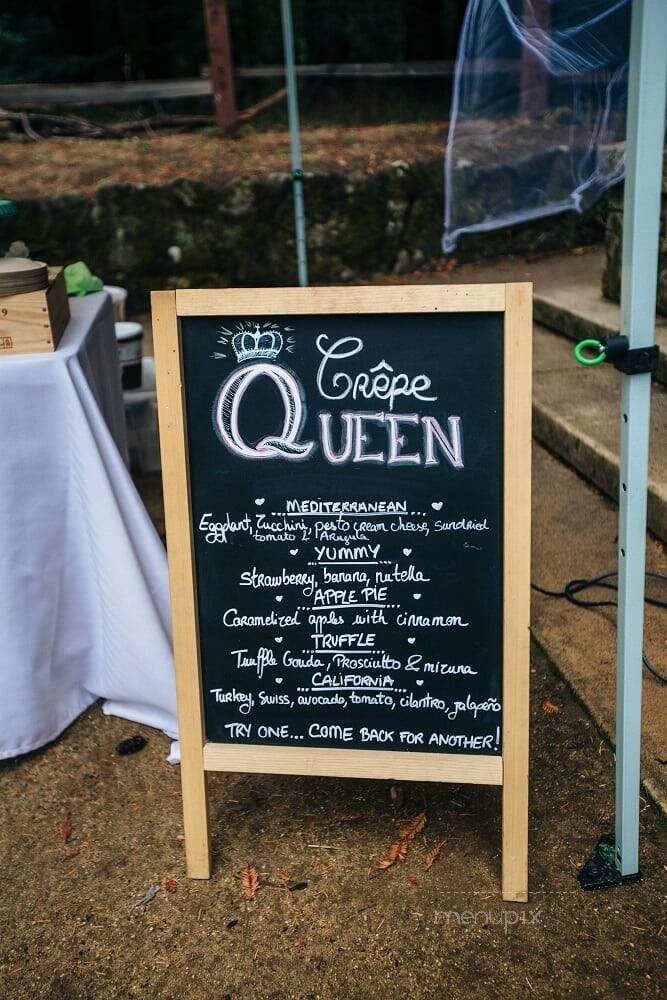 Crêpe
QUEEN
MEDITERRANEAN
Eggplant, Zucchini, pesto cream cheese, Sundried
tomato & Arugula
YUMMY
Strawberry, banana, nutella
APPLE PIE
Caramelized apples with cinnamon
TRUFFLE
Truffle Gouda, Prosciutto & mizuna
CALIFORNIA
Turkey, Swiss, avocado, tomato, cilantro, jalapeño
TRY ONE... COME BACK FOR ANOTHER!
9
menupix